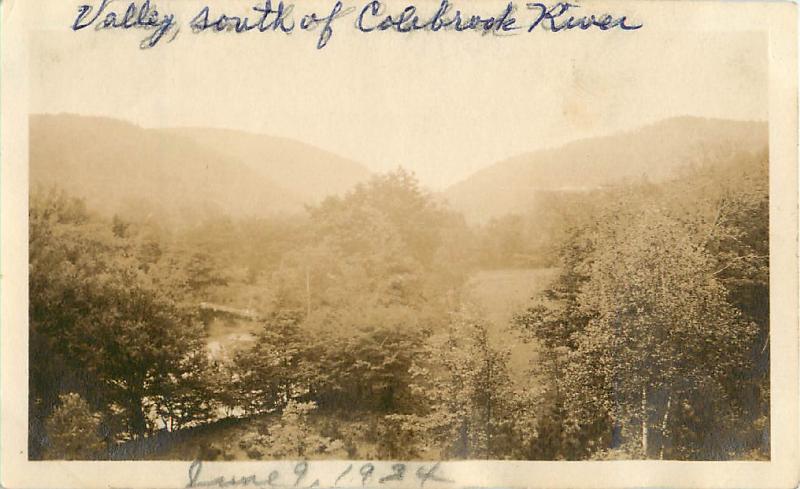 Valley, south of Colebrook River
June 9, 1924